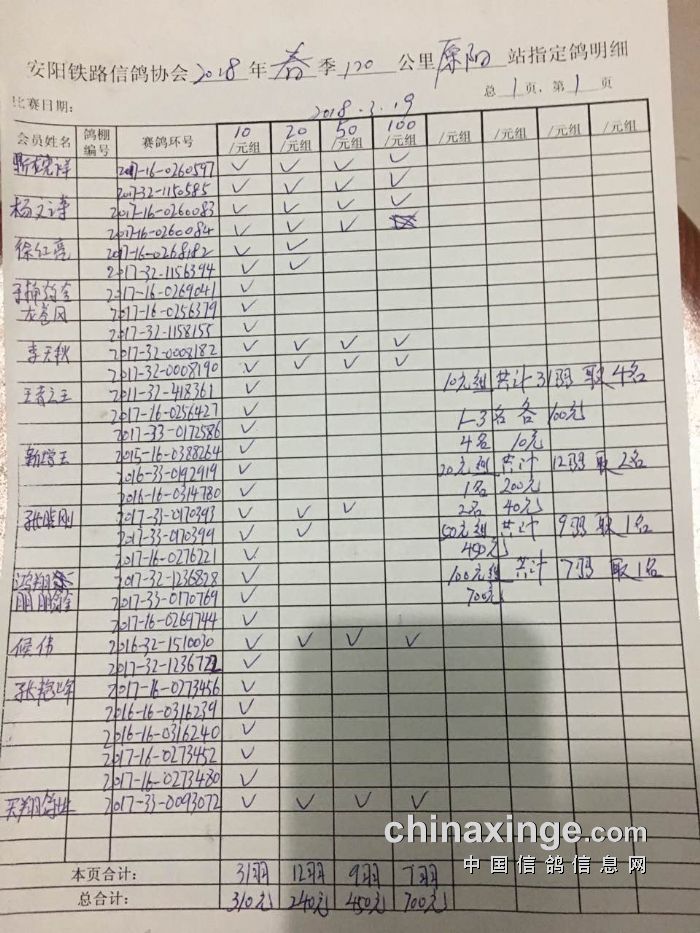 安阳铁路信鸽协会2018年春季120公里原阳站指定鸽明细
比赛日期: 2018.3.19 总1页,第1页
会员姓名 鸽棚编号 赛鸽环号 10/元组 20/元组 50/元组 100/元组 /元组 /元组 /元组 /元组
2017-16-0260597 ✓ ✓ ✓ ✓
2017-32-1150585 ✓ ✓ ✓ ✓
杨文涛 2017-16-0260083 ✓ ✓ ✓ ✓
2017-16-0260084 ✓ ✓ ✓
徐红亮 2017-16-0268182 ✓ ✓
2017-32-1156394 ✓ ✓
2017-16-0269041 ✓
龙卷风 2017-16-0256379 ✓
2017-32-1158155 ✓
李天秋 2017-32-0008182 ✓ ✓ ✓ ✓
2017-32-0008190 ✓ ✓ ✓ ✓
王者之王 2011-32-418361 ✓ 10元组共计31羽取4名
2017-16-0256427 ✓ 1-3名各100元
2017-33-0172586 ✓ 4名 10元
靳增玉 2015-16-0388264 ✓ 20元组共计12羽取2名
2016-33-0192919 ✓ 1名 200元
2016-16-0314780 ✓ 2名 40元
张胜刚 2017-33-0170393 ✓ ✓ ✓ 50元组共计9羽取1名
2017-33-0170399 ✓ ✓ 450元
2017-16-0276221 ✓ 100元组共计7羽取1名
鸿翔 2017-32-1236828 ✓ 700元
朋朋鸽舍 2017-33-0170769 ✓
2017-16-0269744 ✓
侯伟 2016-32-1510030 ✓ ✓ ✓ ✓
2017-32-1236722 ✓
张艳峰 2017-16-0273456 ✓
2016-16-0316239 ✓
2016-16-0316240 ✓
2017-16-0273452 ✓
2017-16-0273480 ✓
天翔鸽业 2017-33-0093072 ✓ ✓ ✓ ✓
本页合计: 31羽 12羽 9羽 7羽
总合计: 310元 240元 450元 700元
chinaxinge.com
中国信鸽信息网